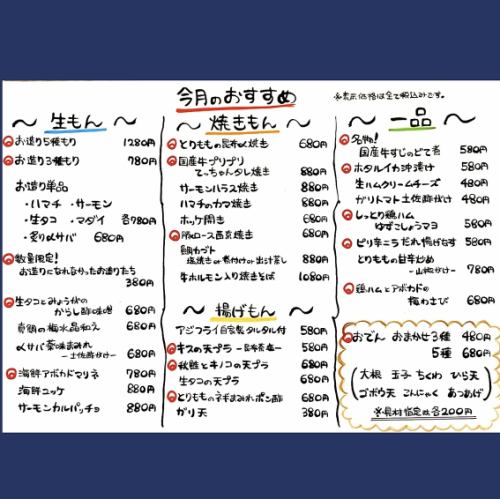 今月のおすすめ
※表示価格は全て税込みです。
〜 生もん 〜
お造り5種もり 1280円
お造り3種もり 780円
お造り単品
・ハマチ ・サーモン
・生タコ ・マダイ 各780円
・炙り〆サバ 680円
数量限定!
お造りになれなかったお造りたち
380円
生タコとみょうがの
からし酢味噌 680円
真鯛の梅水晶和え 680円
〆サバ薬味まみれ
-土佐酢がけ- 680円
海鮮アボカドマリネ 780円
海鮮ユッケ 880円
サーモンカルパッチョ 880円
〜 焼きもん 〜
とりももの昆布〆焼き 680円
国産牛プリプリ
てっちゃんタレ焼き 880円
サーモンハラス焼き 880円
ハマチのカマ焼き 880円
ホッケ開き 680円
豚ロース西京焼き 680円
鯛カブト
塩焼きor煮付けor出汁蒸し 880円
牛ホルモン入り焼きそば 1080円
〜 揚げもん 〜
アジフライ自家製タルタル付 580円
キスの天プラ -昆布茶塩- 580円
秋鮭とキノコの天プラ 680円
生タコの天プラ 680円
とりもものネギまみれポン酢 680円
ガリ天 380円
〜 一品 〜
名物!
国産牛すじのどて煮 580円
ホタルイカ沖漬け 580円
生ハムクリームチーズ 480円
ガリトマト土佐酢がけ 480円
しっとり鶏ハム
ゆずこしょうマヨ 580円
ピリ辛ニラだれ揚げなす 580円
とりももの甘辛炒め
-山椒がけ- 780円
鶏ハムとアボカドの
梅わさび 680円
おでん おまかせ3種 480円
5種 680円
大根 玉子 ちくわ ひら天
ゴボウ天 こんにゃく あつあげ
※具材指定は各200円